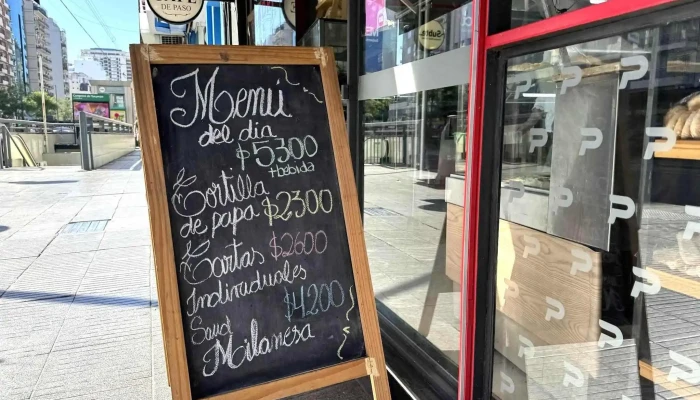 DE PASO
Menú
del dia
$5300
+bebida
Tortilla
de papa $2300
Tartas $2600
Individuales
Sand $4200
Milanesa